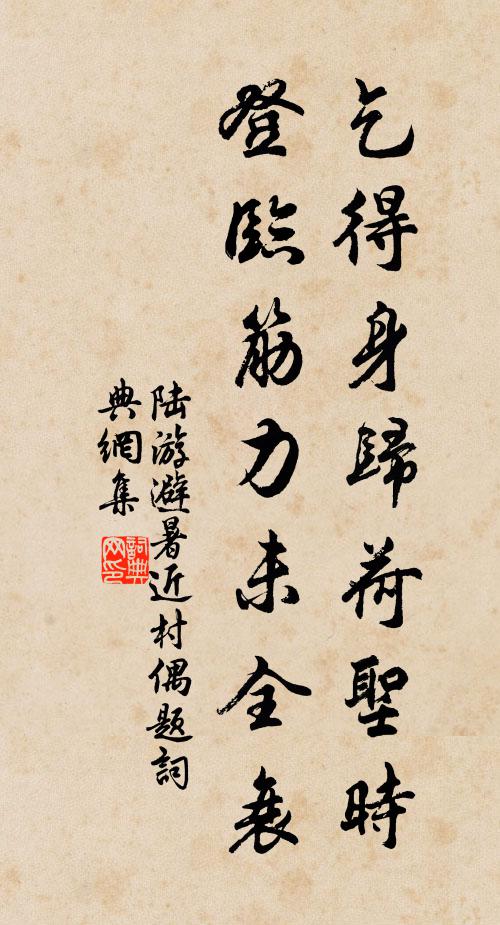 乞得身歸荷聖時
登臨筋力未全衰
陆游避暑近村偶题詞
典網集
詞典网印